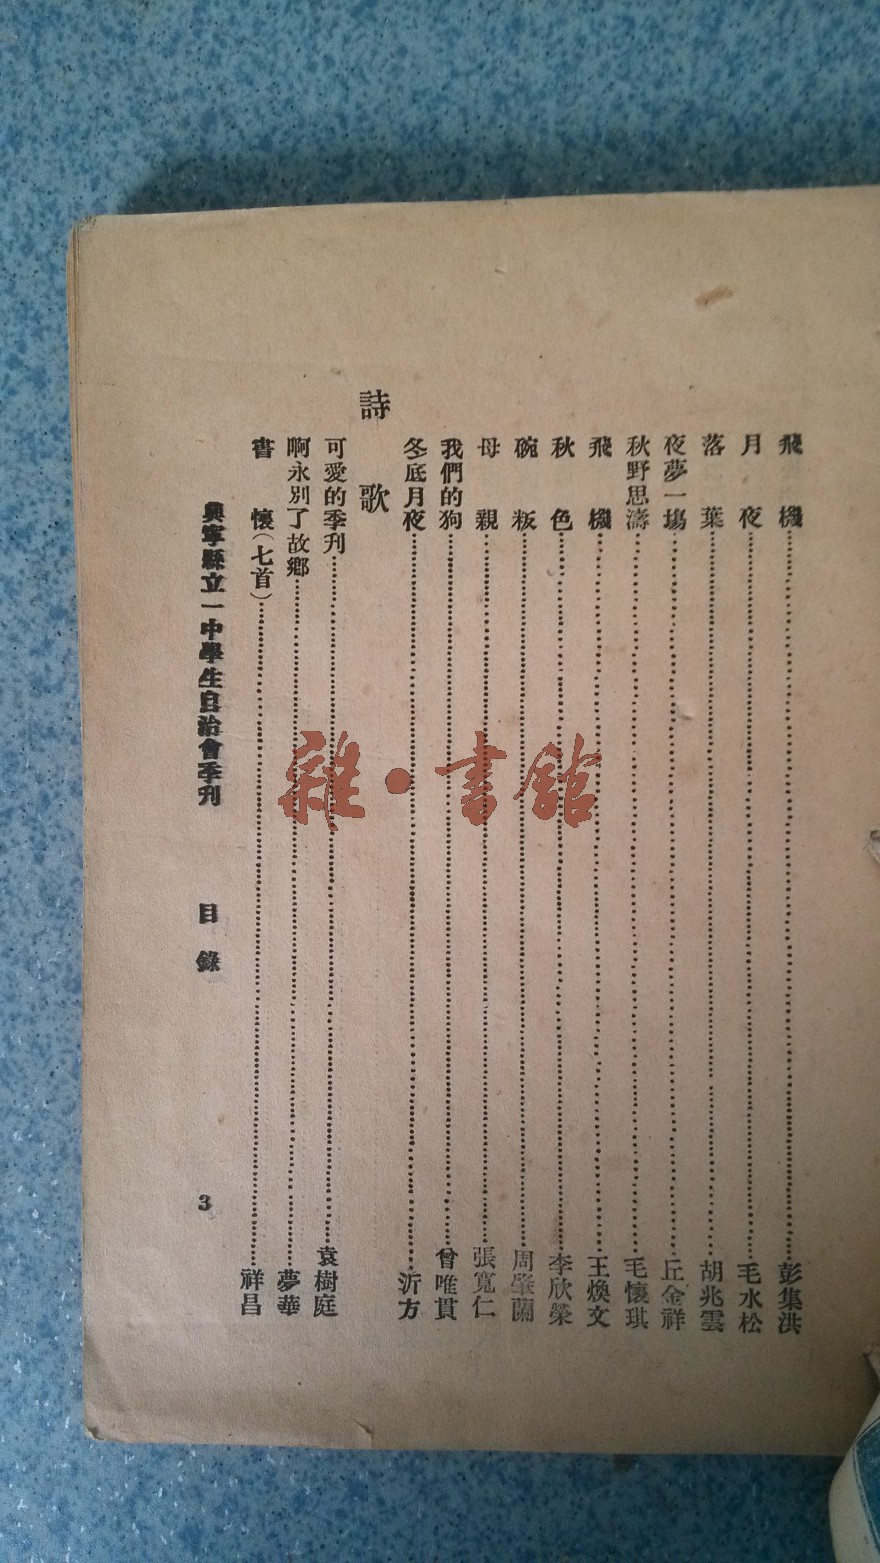 飛機……彭集洪
月夜……毛水松
落葉……胡兆雲
夜夢一塲……丘金祥
秋野思濤……毛懷琪
飛機……王煥文
秋色……李欣榮
碗粄……周肇蘭
母親……張寬仁
我們的狗……曾唯貫
冬底月夜……沂方
詩歌
可愛的季刊……袁樹庭
啊永別了故鄉……夢華
書懷(七首)……祥昌
興寧縣立一中學生自治會季刊 目錄 3
雜·書館